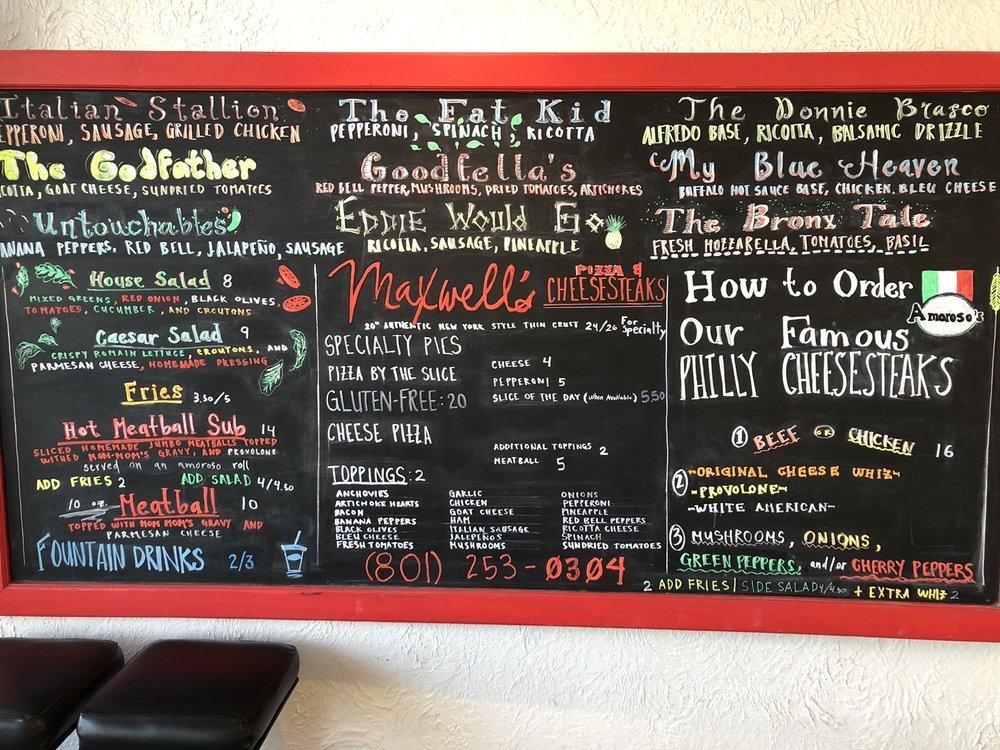 Italian Stallion
EPPERONI, SAUSAGE, GRILLED CHICKEN
The Godfather
COTTA, GOAT CHEESE, SUNDRIED TOMATOES
Untouchables
ANANA PEPPERS, RED BELL, JALAPEÑO, SAUSAGE
The Fat Kid
PEPPERONI, SPINACH, RICOTTA
Goodfella's
RED BELL PEPPER, MUSHROOMS, DRIED TOMATOES, ARTICHORES
EDDIE WOULD GO
RICOTTA, SAUSAGE, PINEAPPLE
The Donnie Brasco
ALFREDO BASE, RICOTTA, BALSAMIC DRIZZLE
My Blue Heaven
BUFFALO HOT SAUCE BASE, CHICKEN, BLEU CHEESE
The Bronx Tale
FRESH MOZZARELLA, TOMATOES, BASIL
House Salad 8
MIXED GREENS, RED ONION, BLACK OLIVES,
TOMATOES, CUCUMBER, AND CROUTONS
Caesar Salad 9
CRISPY ROMAIN LETTUCE, CROUTONS, AND
PARMESAN CHEESE, HOMEMADE DRESSING
Fries 3.50/5
Hot Meatball Sub 14
SLICED HOMEMADE JUMBO MEATBALLS TOPPED
WITHED MOM-MOM'S GRAVY, AND PROVOLONE
served on an amoroso roll
ADD FRIES 2 ADD SALAD 4/4.50
10 oz. Meatball 10
TOPPED WITH MOM MOM'S GRAVY AND
PARMESAN CHEESE
FOUNTAIN DRINKS 2/3
Maxwell's PIZZA & CHEESESTEAKS
20" AUTHENTIC NEW YORK STYLE THIN CRUST 24/26 For Specialty
SPECIALTY PIES
PIZZA BY THE SLICE
CHEESE 4
PEPPERONI 5
SLICE OF THE DAY (When Available) 5.50
GLUTEN-FREE: 20
CHEESE PIZZA
ADDITIONAL TOPPINGS 2
MEATBALL 5
TOPPINGS: 2
ANCHOVIES
ARTICHOKE HEARTS
BACON
BANANA PEPPERS
BLACK OLIVES
BLEU CHEESE
FRESH TOMATOES
GARLIC
CHICKEN
GOAT CHEESE
HAM
ITALIAN SAUSAGE
JALEPEÑOS
MUSHROOMS
ONIONS
PEPPERONI
PINEAPPLE
RED BELL PEPPERS
RICOTTA CHEESE
SPINACH
SUNDRIED TOMATOES
(801) 253-0304
How to Order
Our Famous
PHILLY CHEESESTEAKS
Amoroso's
1 BEEF OR CHICKEN 16
2 -ORIGINAL CHEESE WHIZ-
-PROVOLONE-
-WHITE AMERICAN-
3 MUSHROOMS, ONIONS,
GREEN PEPPERS, and/or CHERRY PEPPERS
2 ADD FRIES/ SIDE SALAD 4/4.50 + EXTRA WHIZ 2